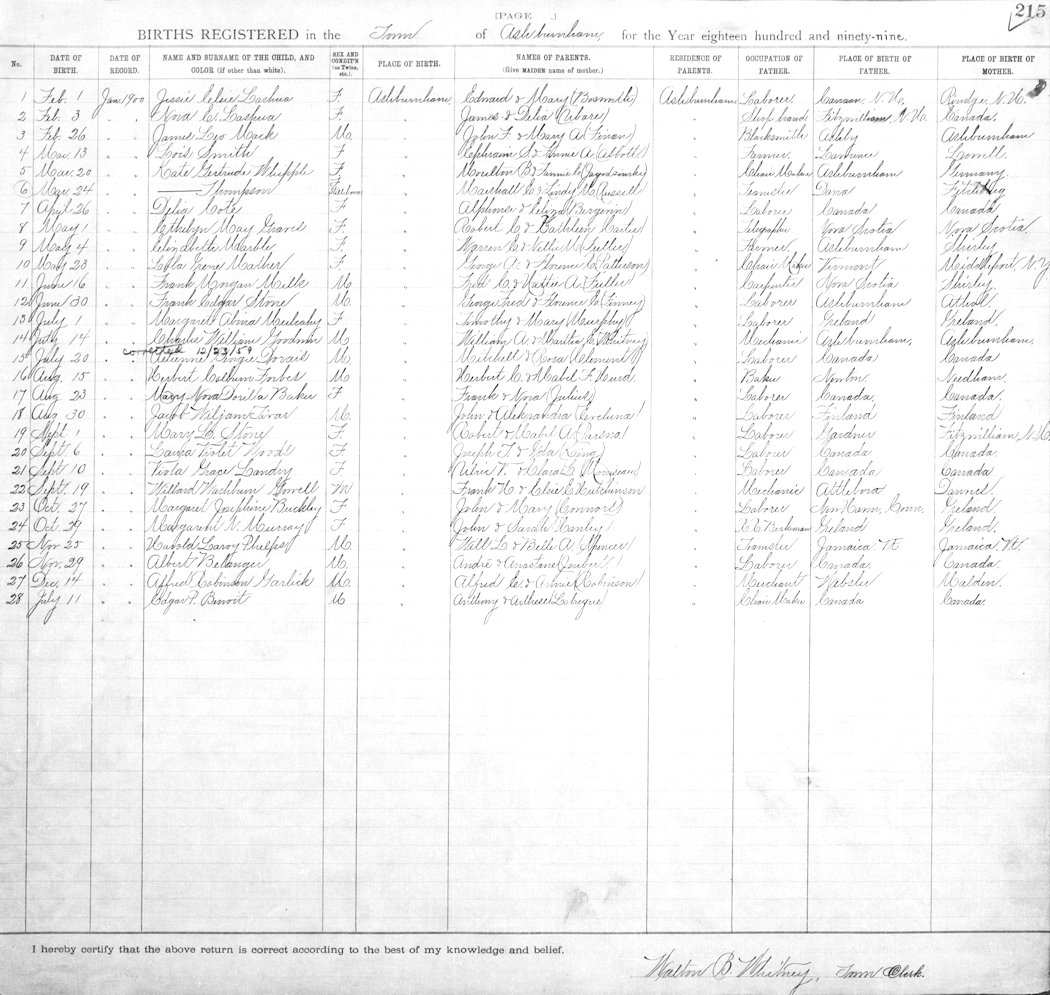 [PAGE .]
215
BIRTHS REGISTERED in the Town of Ashburnham, for the Year eighteen hundred and ninety-nine.
No. DATE OF BIRTH. DATE OF RECORD. NAME AND SURNAME OF THE CHILD, AND COLOR (if other than white). SEX AND CONDIT'N (as Twins, etc.). PLACE OF BIRTH. NAMES OF PARENTS. (Give MAIDEN name of mother.) RESIDENCE OF PARENTS. OCCUPATION OF FATHER. PLACE OF BIRTH OF FATHER. PLACE OF BIRTH OF MOTHER.
1 Feb. 1 Jan. 1900 Jessie Elsie Lashua F. Ashburnham Edward & Mary (Bosworth) Ashburnham Laborer Canaan, N.H. Rindge, N.H.
2 Feb. 3 " " Nova C. Lashua F " James & Delia " Shop hand Fitzwilliam N.H. Canada.
3 Feb. 26 " " James Leo Mack M. " John F. & Mary A. (Finan) " Blacksmith Ashby Ashburnham
4 Mar. 13 " " Lois Smith F " Ephraim S. & Fannie A. (Abbott) " Farmer Lawrence Lowell.
5 Mar. 20 " " Kate Gertrude Whipple F " Moulton B. & Fannie " Chair Maker Ashburnham Germany
6 Mar. 24 " " —— Thompson F Stillborn " Marshall E. & Lindy M. (Russell) " Teamster Dana Fitchburg
7 April 26 " " Delia Cote F " Alphonse & (Bergeron) " Laborer Canada Canada
8 May 1 " " Ethelyn May Graves F " Robert C. & Kathleen " Nova Scotia Nova Scotia.
9 May 4 " " Marble F " Warren E. & Nellie M. (Fuller) " Farmer Ashburnham Shirley
10 May 23 " " Leola Irene Mather F " George A. & Florence E. (Patterson) " Chair Maker Vermont Middleport, N.Y.
11 June 16 " " Frank Morgan Mills M. " Fred C. & Hattie A. (Fuller) " Carpenter Nova Scotia Shirley.
12 June 30 " " Frank Edgar Stone M. " George Fred & Florence G. (Finney) " Laborer Ashburnham Athol.
13 July 1 " " Margaret Abina Mulcahy F " Timothy & Mary (Murphy) " Laborer Ireland Ireland.
14 July 14 " " Charles William Goodman M " William A. & Martha E. (Whitney) " Mechanic Ashburnham, Ashburnham.
corrected 12/23/59
15 July 20 " " Gervais M " Mitchell & Rosa (Clement) " Laborer Canada Canada
16 Aug. 15 " " Herbert Colburn Forbes M. " Herbert C. & Mabel F. (Hurd) " Baker Newton Needham.
17 Aug 23 " " Mary Nova Dorilla Baker F " Frank & Nora (Julius) " Laborer Canada, Canada.
18 Aug 30 " " Jacob Wiljam M. " John & Aleksandra " Laborer Finland Finland
19 Sept. 1 " " Mary L. Stone F " Robert & Mabel A. " Laborer Gardner Fitzwilliam, N.H.
20 Sept. 6 " " Laura Violet Woods F " Joseph F. & (King) " Laborer Canada Canada.
21 Sept 10 " " Viola Grace Landry F " & Clara L. " Laborer Canada Canada
22 Sept. 19 " " Willard Washburn Howell m " Frank H. & Elsie E. (Hutchinson) " Mechanic Attleboro
23 Oct. 27 " " Margaret Josephine Buckley F " John & Mary (Connors) " Laborer New Haven, Conn. Ireland
24 Oct. 29 " " Margaret W. Murray F " John & Sarah (Hanley) " Ireland Ireland.
25 Nov 25 " " Harold Leroy Phelps M. " Will L. & Belle A. (Spencer) " Teamster Jamaica Vt. Jamaica, Vt.
26 Nov. 29 " " Albert Belanger M. " André & (Joubert) " Laborer Canada. Canada.
27 Dec. 14 " " Alfred Robinson Garlick M. " Alfred E. & Annie (Robinson) " Merchant Webster Malden.
28 July 11 " " Edgar P. Benoit M " Anthony & " Chair Maker Canada Canada.
I hereby certify that the above return is correct according to the best of my knowledge and belief.
Walton B. Whitney, Town Clerk.